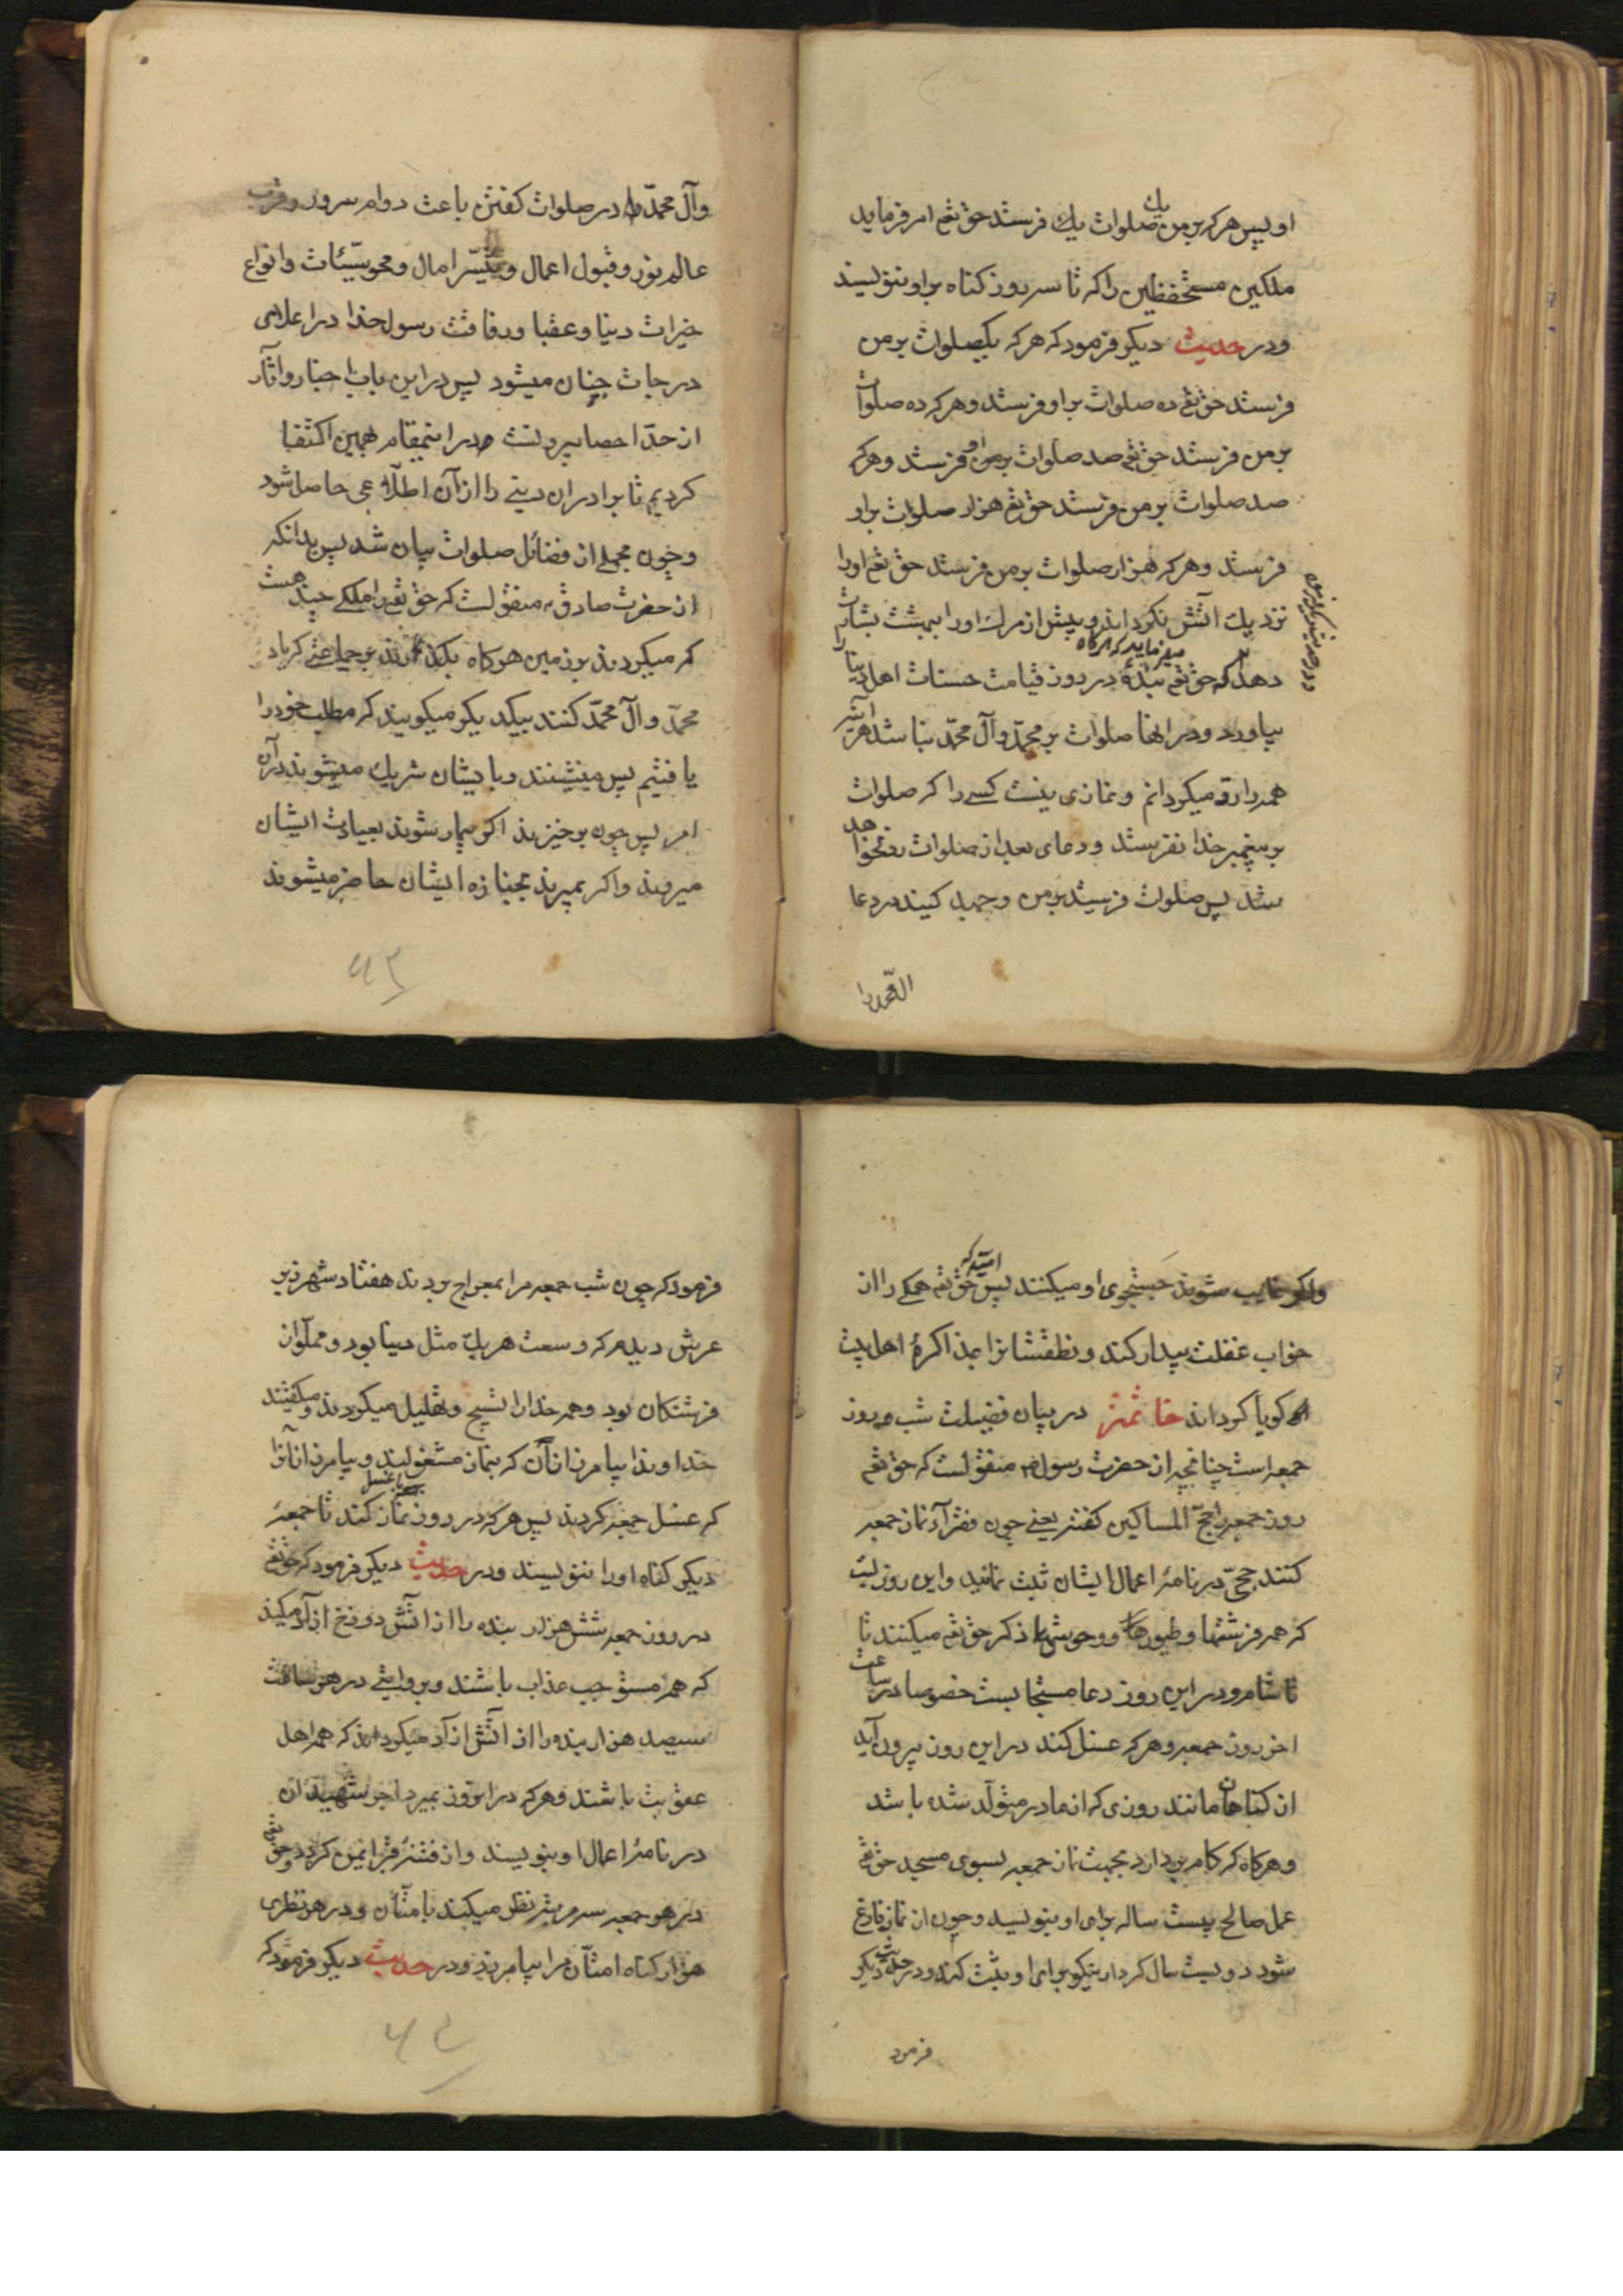 او پس هر که بر من یک صلوات یک فرستد حق تعم امر فرماید
ملکین مستحفظین را که تا سه روز کناه بر او ننویسند
ودر حدیث دیکر فرمود که هر که یکصلوات بر من
فرستد حق تعم ده صلوات بر او فرستد وهر که ده صلوات
بر من فرستد حق تعم صد صلوات بر او فرستد وهر که
صد صلوات بر من فرستد حق تعم هزار صلوات بر او
فرستد وهر که هزار صلوات بر من فرستد حق تعم اورا
نزدیک اتش نکرداند وپیش از مرك اورا ببهشت بشارت
دهد که حق تعم میفرماید که هرکاه بندهٔ در روز قیامت حسنات اهل دنیا را
بیاورد ودر انها صلوات بر محمد وآل محمد نباشد هر آینه
همه را رد میکردانم ونمازی نیست کسی را که صلوات
بر پیغمبر خدا نفرستد ودعای بعد از صلوات رد نخواهد
شد پس صلوات فرستید بر من وجهد کنید در دعا
الِ محمد را
وآل محمد را در صلوات کفتن باعث دوام سرور وقرب
عالم نور وقبول اعمال وتیسّر امال ومحو سیّئات وانواع
خیرات دنیا وعقبا ورفاقت رسول خدا در اعلای
درجات جنان میشود پس در این باب اخبار واثار
از حدّ احصا بیرونست ودر اینمقام بهمین اکتفا
کردیم تا برادران دینی را از آن اطلاعی حاصل شود
وچون مجملی از فضائل صلوات بیان شد پس بدانکه
از حضرت صادق ع منقولست که حق تعم را ملکی چند هست
که میکردند بر زمین هرکاه بکذرند بر جماعتی که یاد
محمّد وآل محمّد کنند بیکدیکر میکویند که مطلب خود را
یافتیم پس مینشینند وبا ایشان شریك میشوند در آن
امر پس چون برخیزند اکر بیمار شوند بعیادت ایشان
میروند واکر بمیرند بجنازه ایشان حاضر میشوند
۴۲
واکر غایب شوند جستجوی او میکنند امید که پس حق تعم همکی را از
خواب غفلت بیدار کند ونطقشانرا بمذاکرهٔ اهلبیت
کویا کرداند خاتمه در بیان فضیلت شب وروز
جمعه است چنانچه از حضرت رسول ص منقولست که حق تعم
روز جمعه را حجّ المساکین کفته یعنی چون فقرا نماز جمعه
کنند حجّی در نامهٔ اعمال ایشان ثبت نمائید واین روزیست
که همه فرشتها وطیورها ووحوشها ذکر حق تعم میکنند تا
تا شام ودر این روز دعا مستجابست خصوصا در ساعت
اخر روز جمعه وهر که غسل کند در این روز بیرون آید
از کناهان مانند روزی که از مادر متولّد شده باشد
وهرکاه که کام بردارد بجهت نماز جمعه بسوی مسجد حق تعم
عمل صالح بیست ساله برای او بنویسد وچون از نماز فارغ
شود دویست سال کردار نیکو برای او ثبت کند ودر حدیث دیکر
فرمود
فرمود که چون شب جمعه مرا بمعراج بردند هفتاد شهر زیر
عرش دیدم که وسعت هر یك مثل دنیا بود ومملّو از
فرشتکان بود وهمه خدا را تسبیح وتهلیل میکردند ومیکفتند
خداوندا بیامرز انان که بنماز مشغولند وبیامرز انانرا
که غسل جمعه کردند پس هر که در روز جمعه با غسل نماز کند تا جمعهٔ
دیکر کناه اورا ننویسند ودر حدیث دیکر فرمود که حق تعم
در روز جمعه شش هزار بنده را از اتش دوزخ ازاد میکند
که همه مستوجب عذاب باشند وبروایتی در هر ساعت
سیصد هزار بنده را از اتش ازاد میکرداند که همه اهل
عقوبت باشند وهر که در انروز بمیرد اجر شهیدان
در نامهٔ اعمال او بنویسند واز فتنهٔ قبر ایمن کردد وحق تعم
در هر جمعه سه مرتبه نظر میکند بامتّان ودر هر نظری
هزار کناه امتّان مرا بیامرزد ودر حدیث دیکر فرمود که